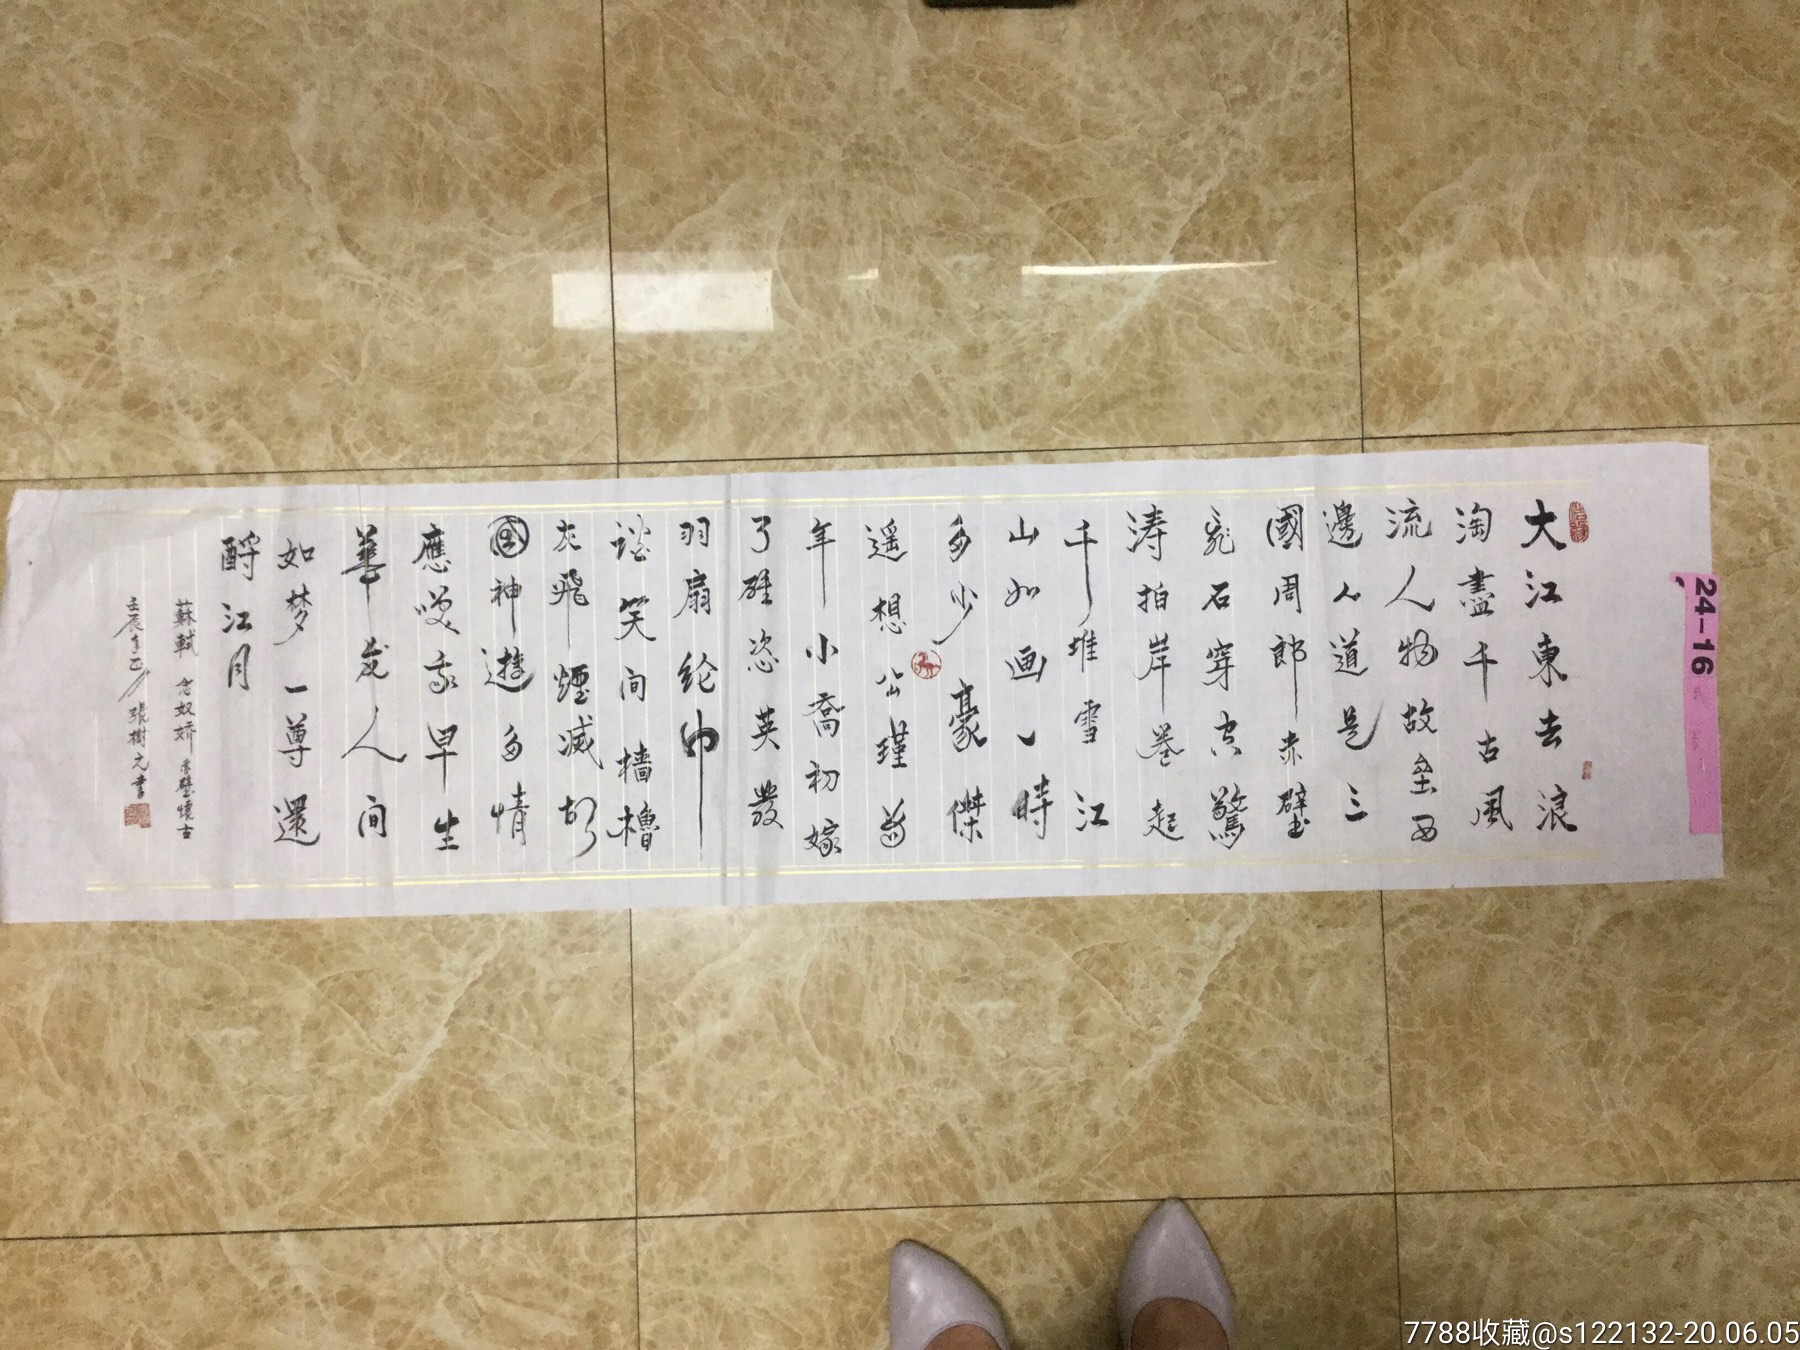 大江東去浪
淘盡千古風
流人物故垒西
邊人道是三
國周郎赤壁
亂石穿空驚
涛拍岸卷起
千堆雪江
山如画一時
多少豪傑
遥想公瑾當
年小喬初嫁
了雄恣英發
羽扇纶巾
谈笑间樯櫓
灰飛煙滅故
國神遊多情
應笑我早生
華发人间
如梦一尊還
酹江月
蘇軾 念奴娇 赤壁懷古
壬辰年 張樹元書
24-16
7788收藏@s122132-20.06.05